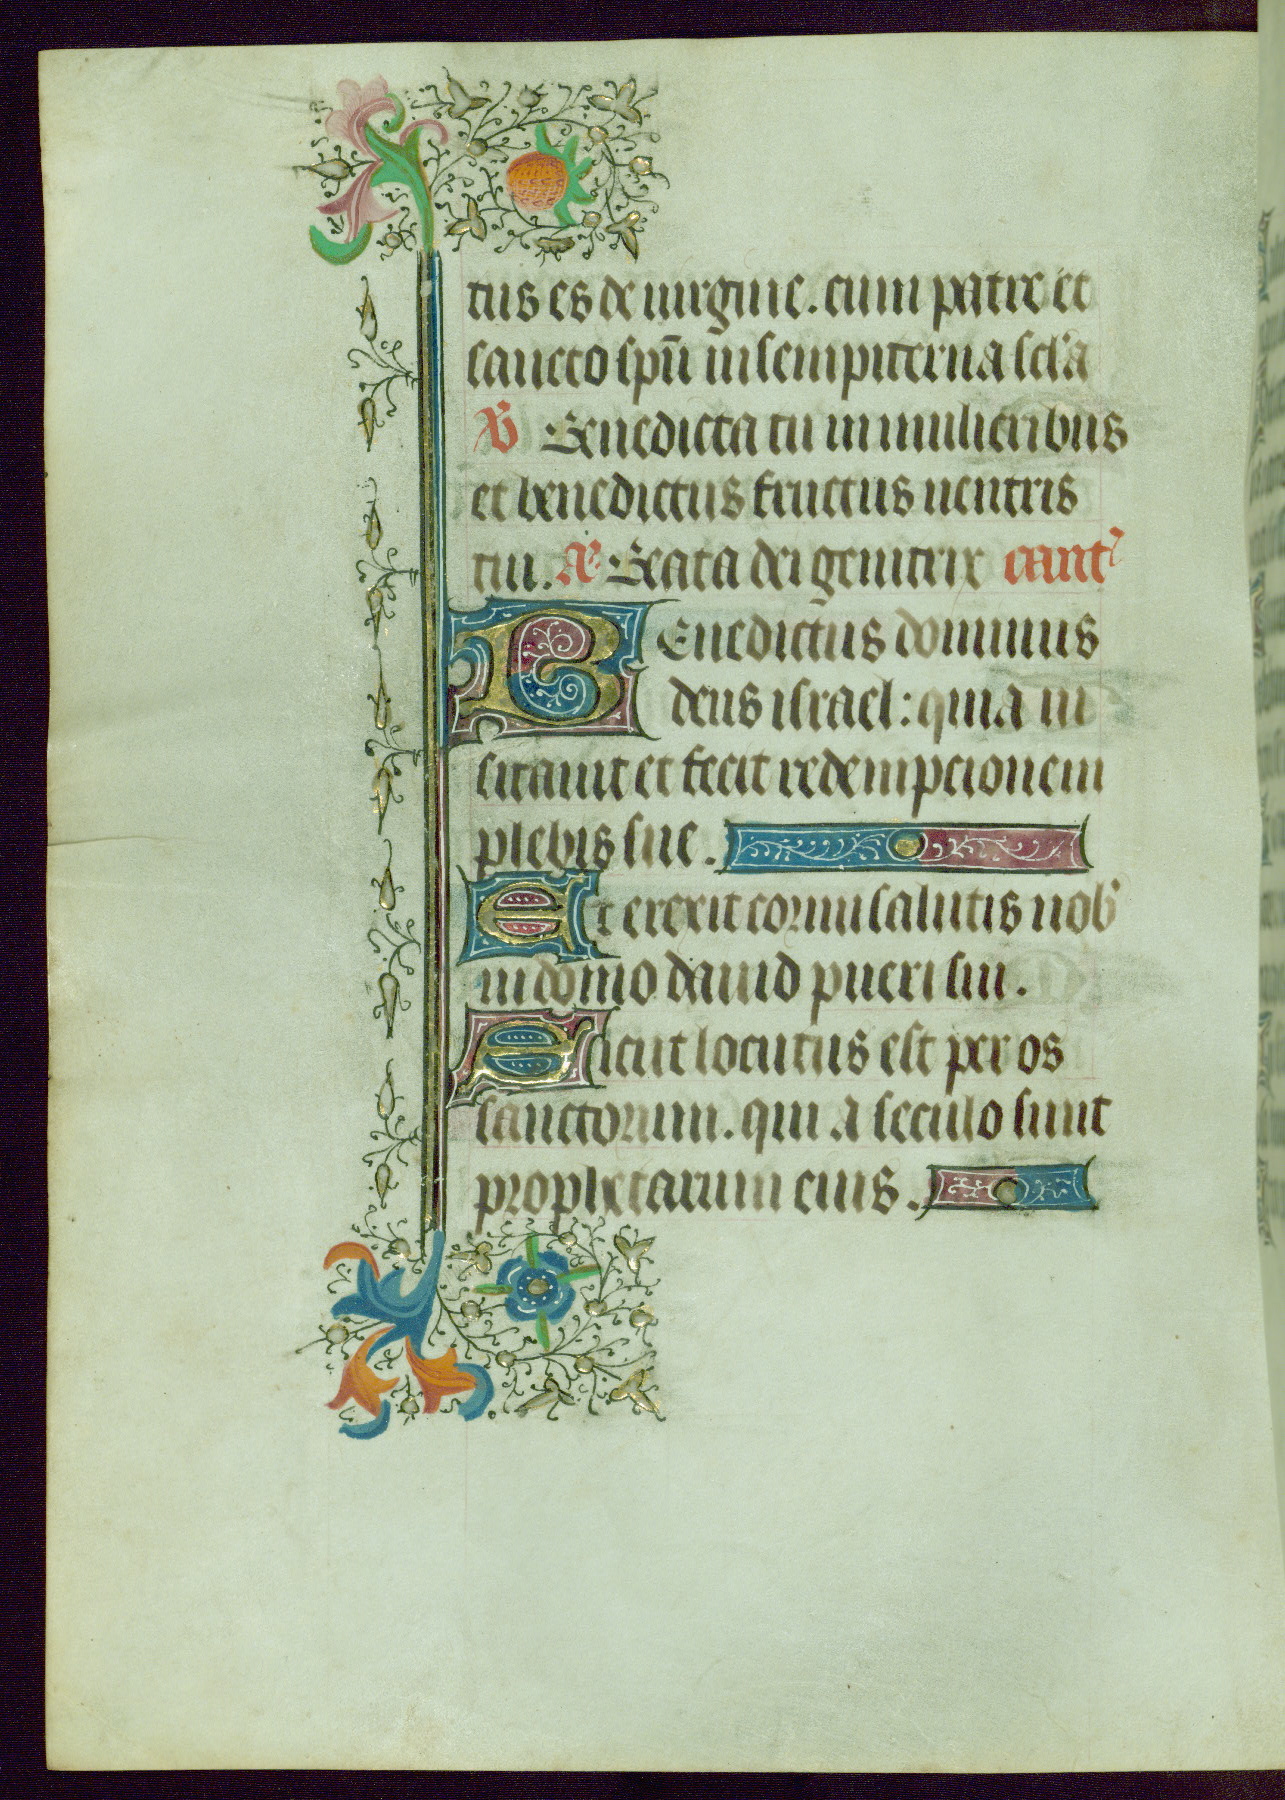 tus es de uirgine. cum patre et
sancto spū in sempiterna scl'a
V Benedicta tu in mulieribus
et benedictus fructus uentris
tui. A Beata dei genitrix cant'
Benedictus dominus
deus israel: quia ui
sitauit et fecit redempcionem
plebis sue.
Et erexit cornu salutis nob'
in domo dauid pueri sui.
Sicut locutus est per os
sanctorum. qui a seculo sunt
prophetarum eius.